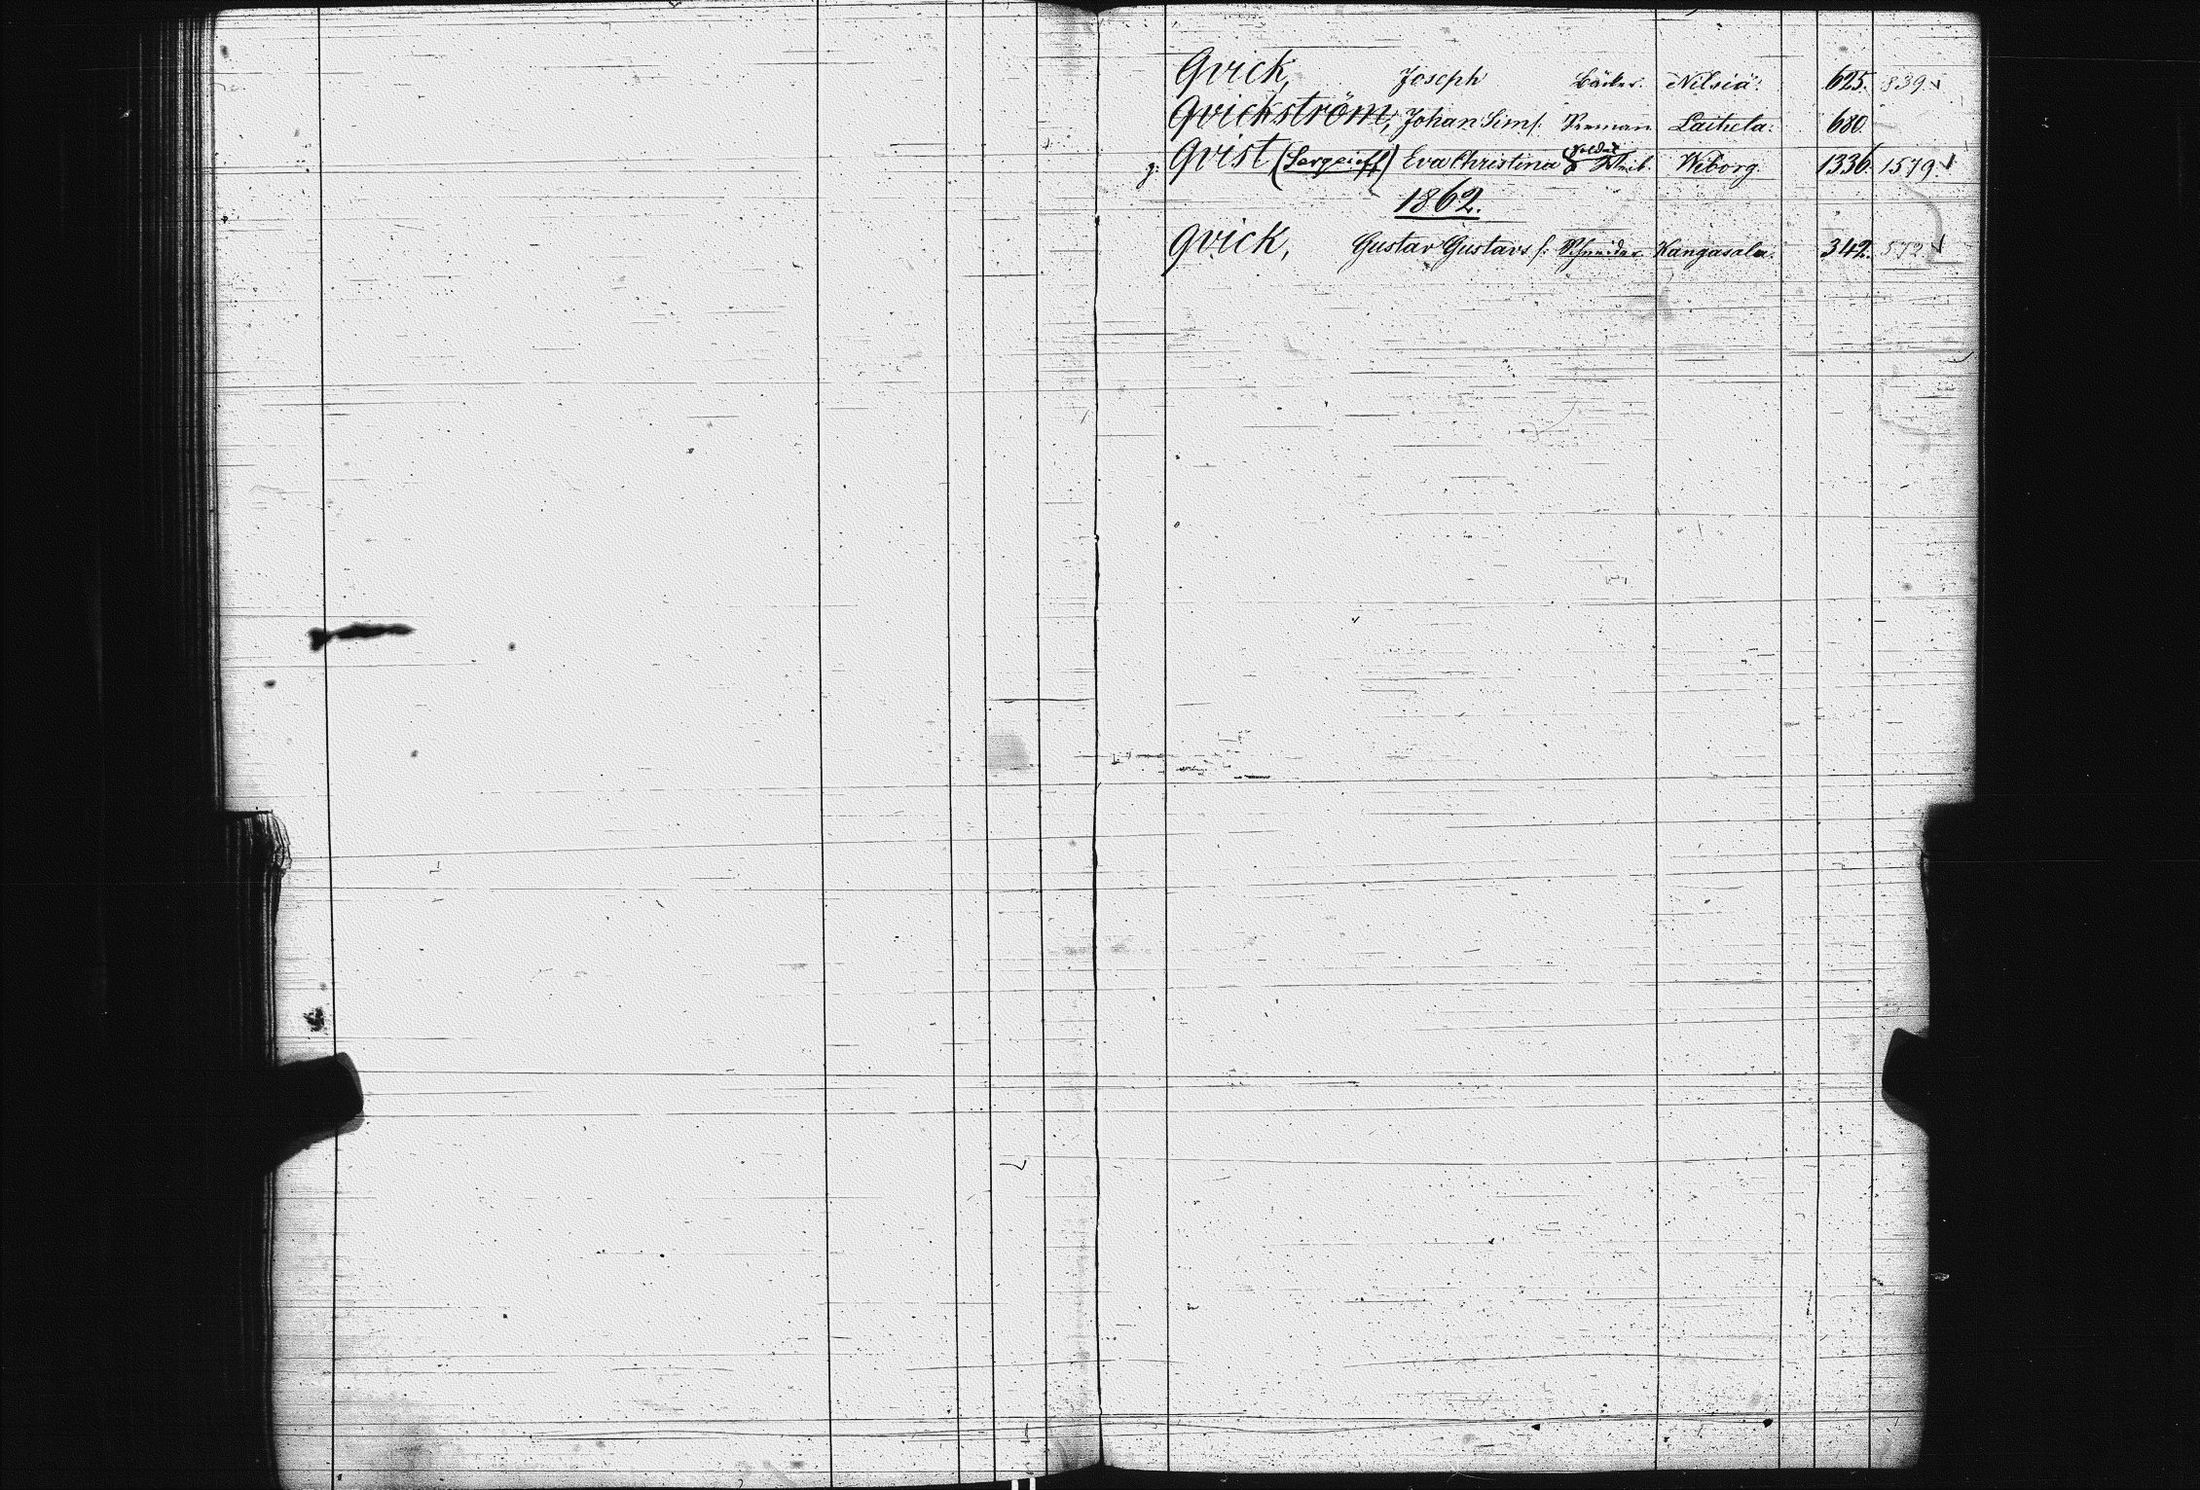 Qvick, Joseph Bäcker. Nilsiä. 625. 839.
Qvickström, Johan Sim s. Laihela. 680.
Qvist (Sergeieff) Eva Christina Soldat Weib. Wiborg. 1336. 1579.
1862.
Qvick, Gustav Gustavs s. Schneider Kangasala. 342. 572.